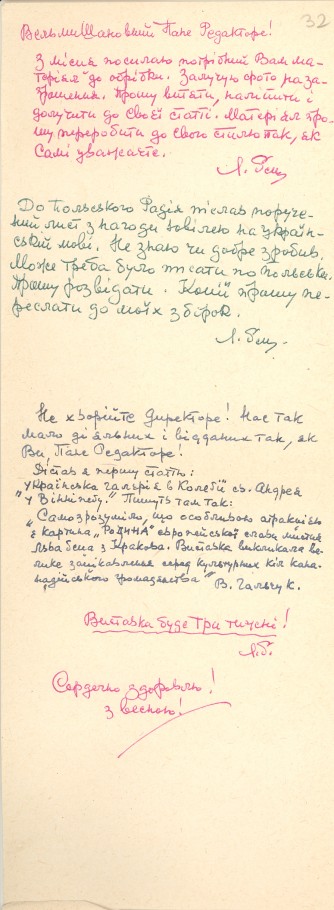 32
Вельмишановний Пане Редакторе!
З місця посилаю потрібний Вам ма-
теріял до обрібки. Залучую фото на за-
Прошу вшати, наліпити і
долучити до Своєї статі. Матеріял про-
шу переробити до Свого стилю так, як
Самі уважаєте.
Л.
До Польського Радія післав поруче-
ний лист з нагоди ювілею на україн-
ській мові. Не знаю чи добре зробив.
Може треба було писати по польськи.
Прошу розвідати. Копії прошу пе-
реслати до моїх збірок.
Л.
Не хворійте Директоре! Нас так
мало діяльних і відданих так, як
Ви, Пане Редакторе!
Дістав я першу статтю:
"Українська галерія в Колегії св. Андрея
у Вінніпегу." Пишуть там так:
"Самозрозуміло, що особливою атракцією
є картина "Родина" європейської слави мистця
Льва Ґеца з Кракова. Виставка викликала ве-
лике зацікавлення серед культурних кіл кана-
дійського громадянства" В. Гальчук.
Виставка буде три тижні!
Л.Ґ.
Сердечно здоровлю!
З весною!